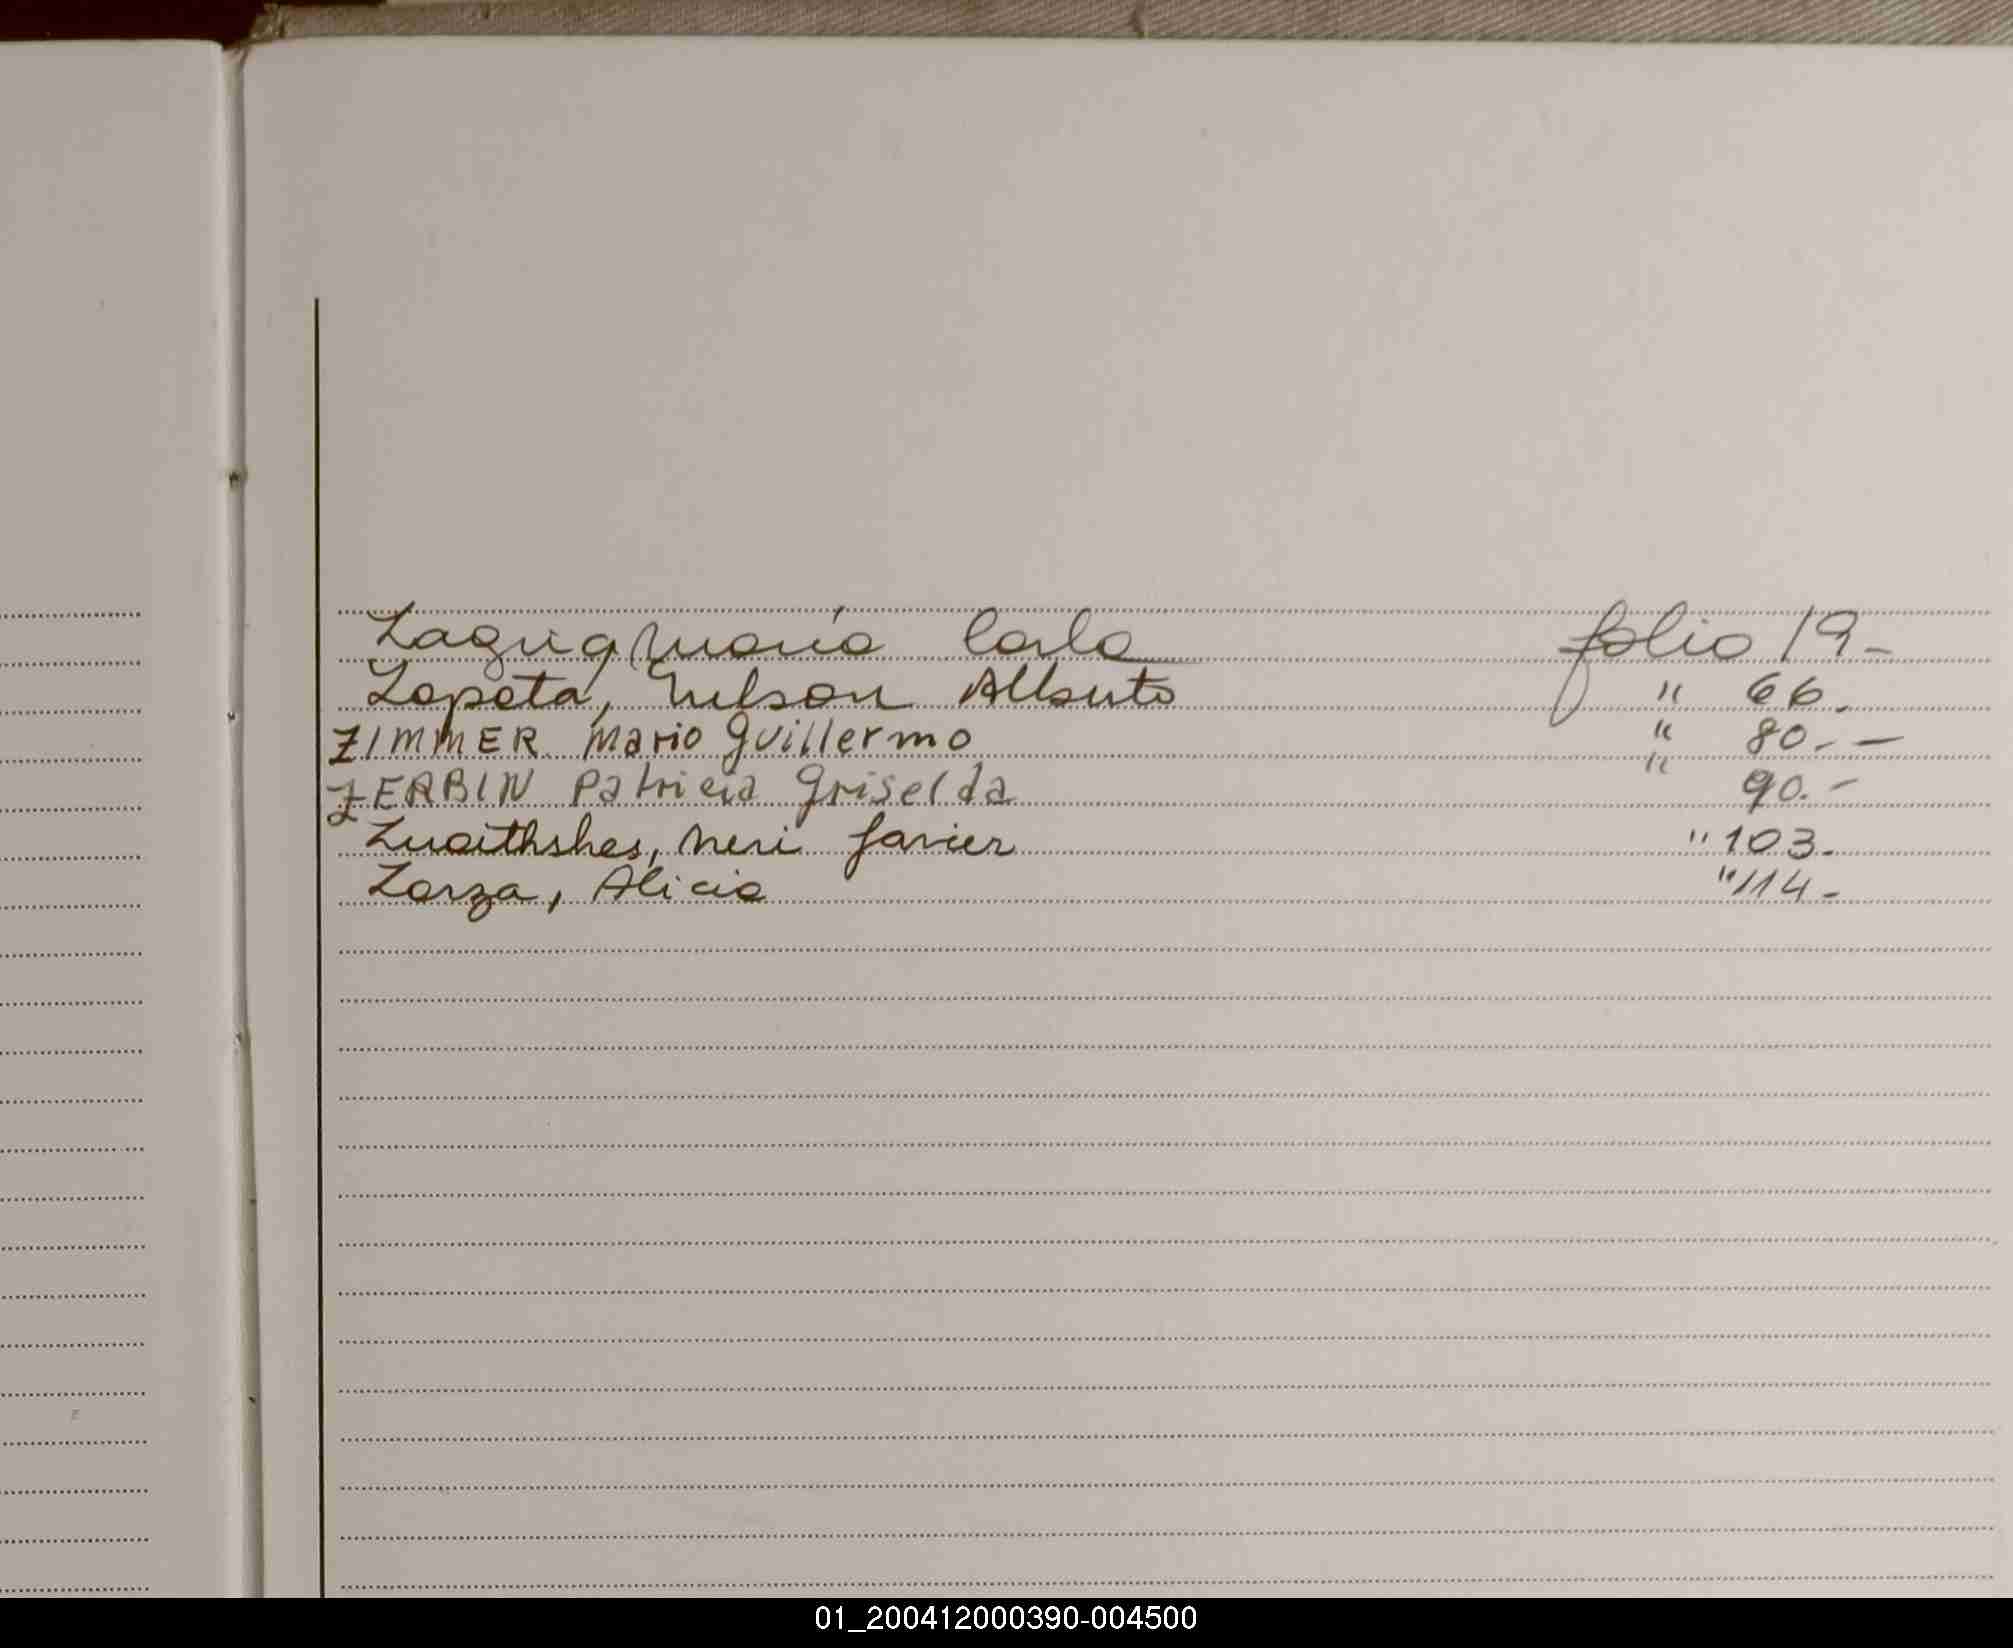 Zagrig María Carla folio 19-
Zapata, Nelson Alberto " 66.
ZIMMER Mario Guillermo " 80.-
ZERBIN Patricia Griselda " 90.-
Neri Javier " 103.
Zorza, Alicia " 114-
01_200412000390-004500